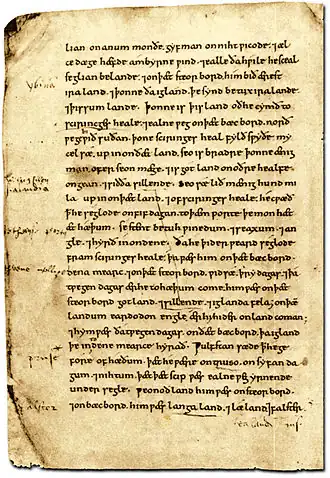 lian on anum monðe. gyf man on niht ƿicode. ⁊ æl
ce dæge hæfde ambyrne ƿind. ⁊ ealle ða hƿile he sceal
seglian be lande. ⁊ on þæt steor bord. him bið ærest
ira land. ⁊ þonne ða igland. þe synd betux ira lande.
⁊ þissum lande. Þonne is þis land oð he cymð to
scirincges heale. ⁊ ealne ƿeg on þæt bæc bord. norð
ƿeg ƿið suðan. þone sciringes heal fylð sƿyðe my
cel sæ. up in on ðæt land. seo is bradre þonne ænig
man. ofer seon mæge. ⁊ is gotland on oðre healfe
ongean. ⁊ siðða sillende. seo sæ lið mænig hund mi
la up in on þæt land. ⁊ of sciringes heale. he cƿæð
þæt he seglode on fif dagan. to þæm porte þe mon hæt
æt hæþum. se stent betuh ƿinedum. ⁊ seaxum. ⁊ an
gle. ⁊ hyrð in on dene. ða he þiderƿeard seglode
fram sciringes heale. þa ƿæs him on þæt bæc bord.
dena mearc. ⁊ on þæt steor bord. ƿid sæ. þry dagas. ⁊ þa
tƿegen dagas ær he to hæþum come. him ƿæs on þæt
steor bord gotland. ⁊ sillende. ⁊ iglanda fela. on þæm
landum eardodon engle. ær hi hider on land coman.
⁊ hym ƿæs ða tƿegen dagas. on ðæt bæc bord. þa igland
þe in dene mearce hyrað. Ƿulfstan sæde þæt he ge
fore of hæðum. þæt he ƿære on truso. on syfan da
gum. ⁊ nihtum. þæt þæt scip ƿæs ealne ƿeg yrnende
under segle. Ƿeonoð land him ƿæs on steor bord.
⁊ on bæc bord. him ƿæs langa land. ⁊ læ land. ⁊ falster.